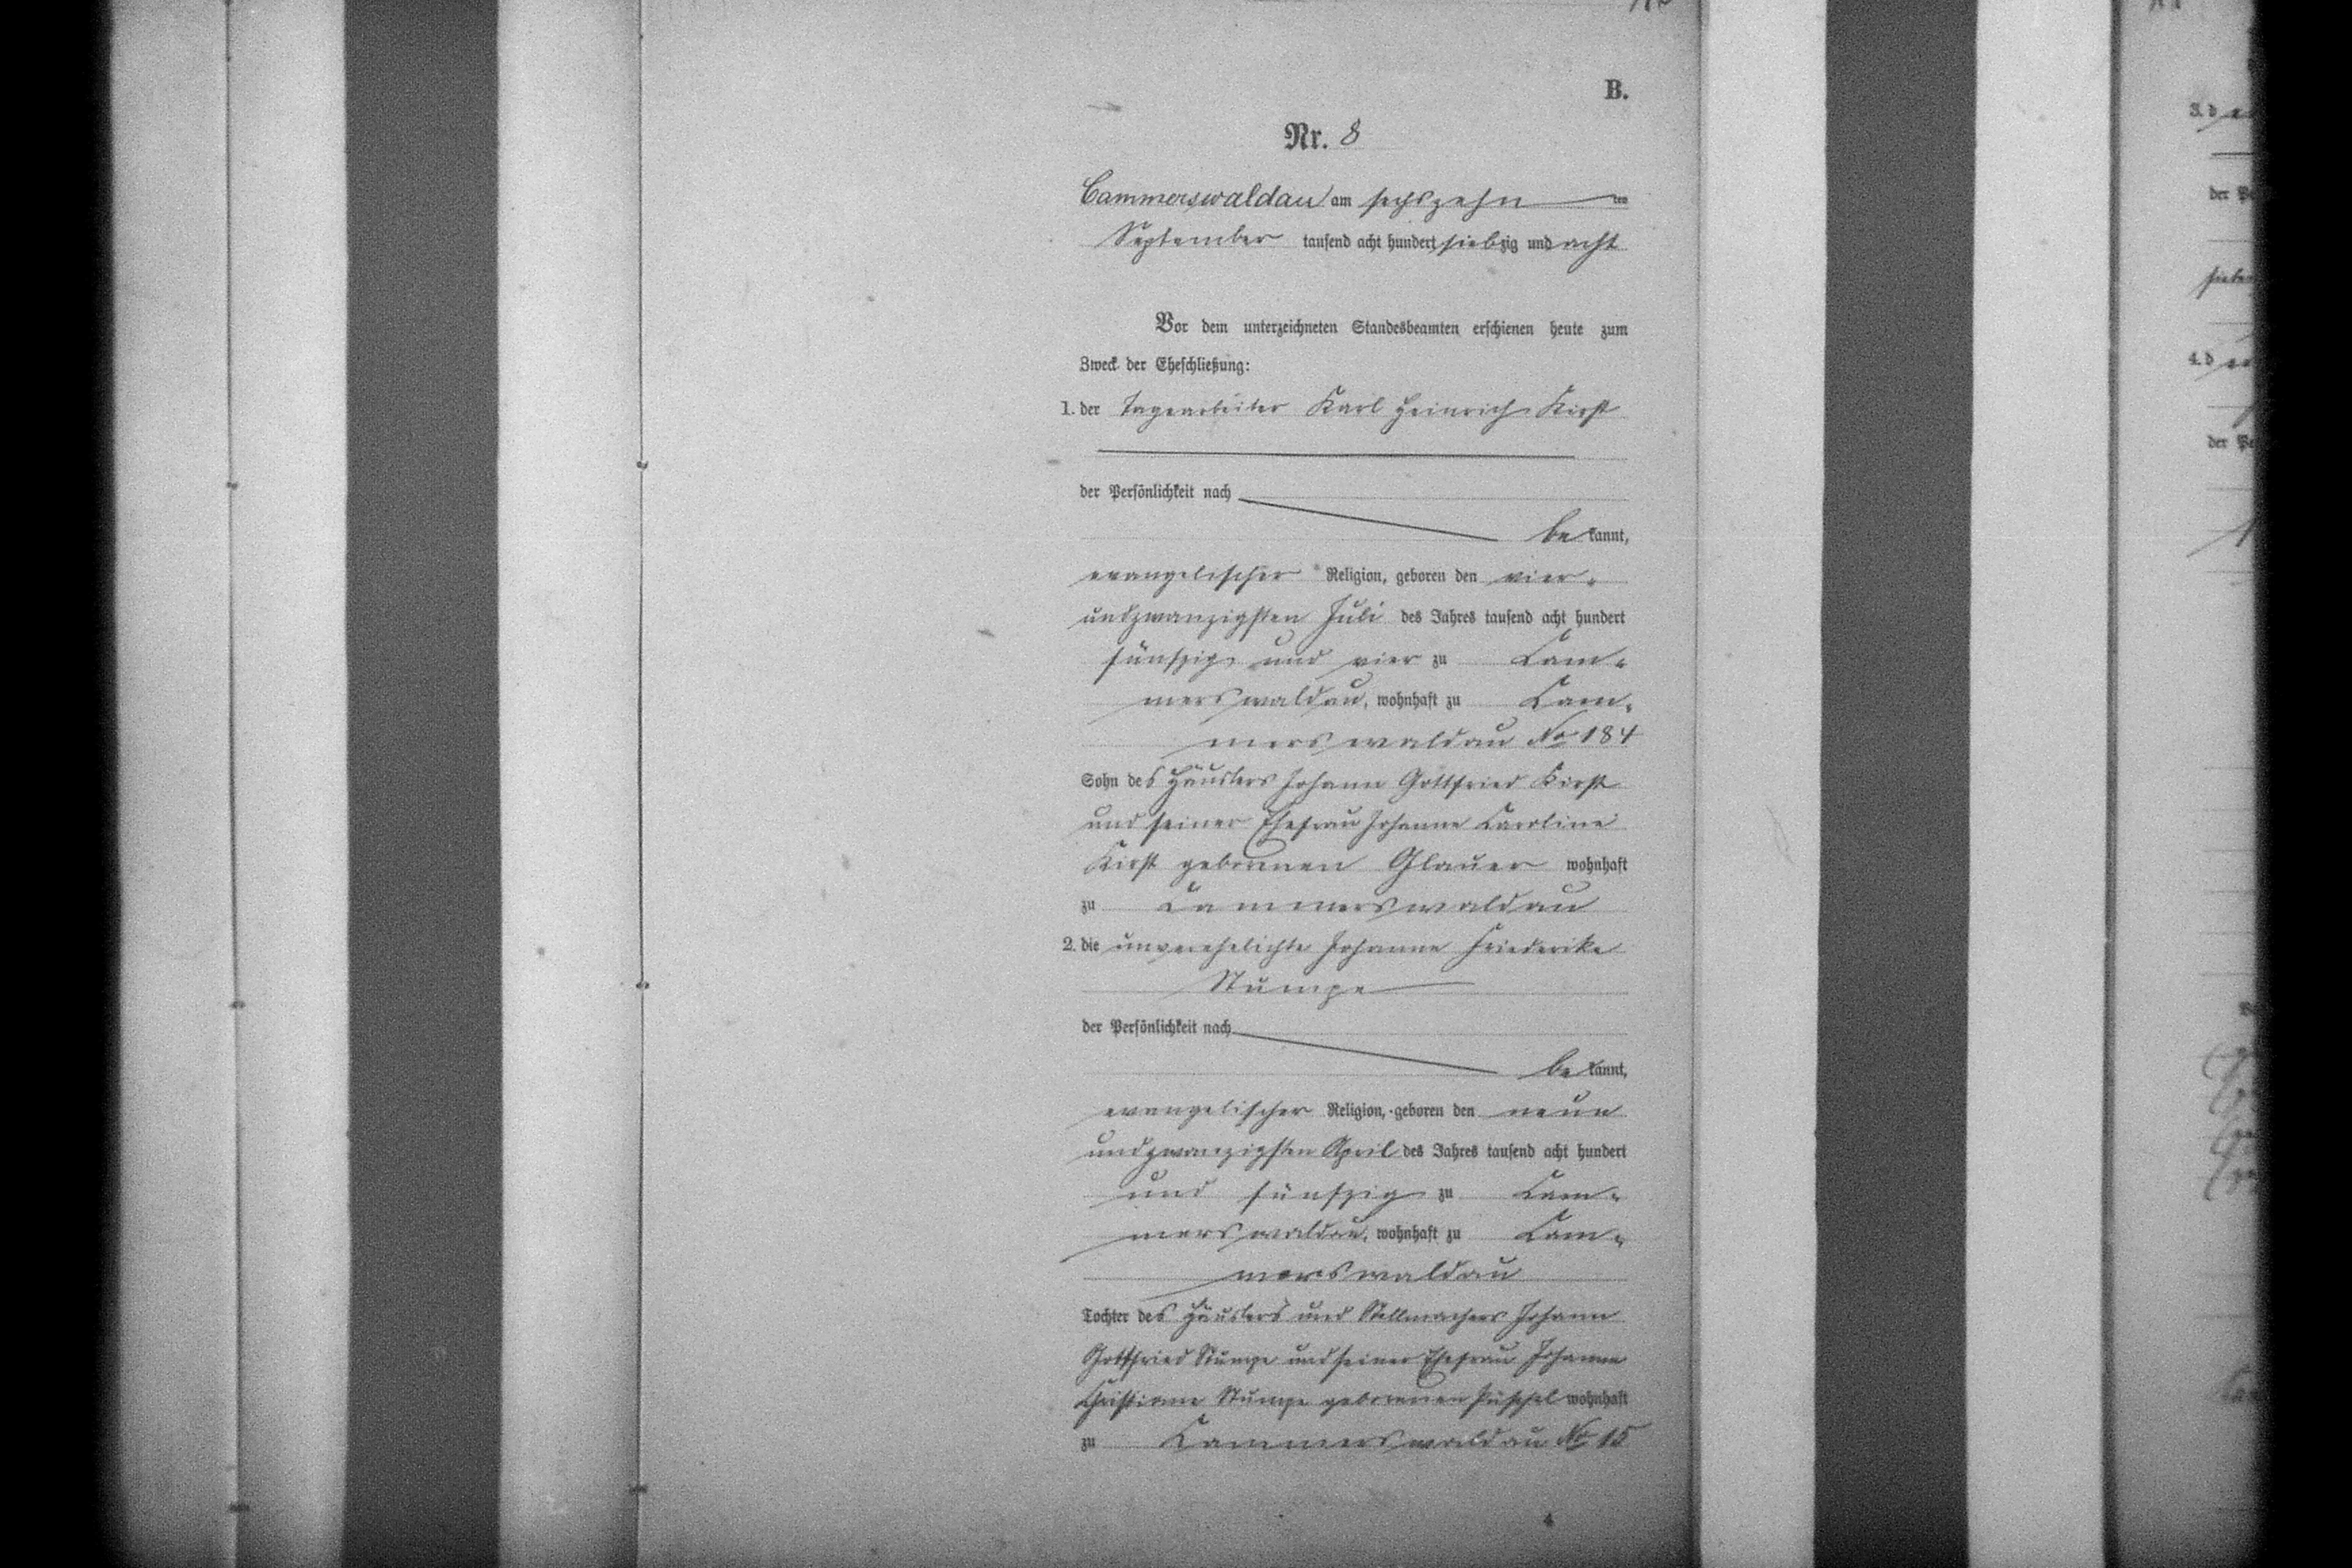 B.
Nr. 8
Cammerswaldau am sechszehn ten
September tausend acht hundert siebzig und acht
Vor dem unterzeichneten Standesbeamten erschienen heute zum
Zweck der Eheschließung:
1. der Tagearbeiter Karl Heinrich Kirst
der Persönlichkeit nach
be kannt,
evangelischer Religion, geboren den vier-
undzwanzigsten Juli des Jahres tausend acht hundert
fünfzig und vier zu Cam-
merswaldau, wohnhaft zu Cam-
merswaldau No 184
Sohn des Häuslers Johann Gottfried Kirst
und seiner Ehefrau Johanne Caroline
Kirst geborenen Glauer wohnhaft
zu Cammerswaldau
2. die unverehelichte Johanne Friederike
Stumpe
der Persönlichkeit nach
be kannt,
evangelischer Religion, geboren den neun
undzwanzigsten April des Jahres tausend acht hundert
und fünfzig zu Cam-
merswaldau, wohnhaft zu Cam-
merswaldau
Tochter des Häuslers und Stellmachers Johann
Gottfried Stumpe und seiner Ehefrau Johanne
Christiane Stumpe geborenen Püschel wohnhaft
zu Cammerswaldau No 15
4
3. d
der Pe
sieben
4. d
der Pe